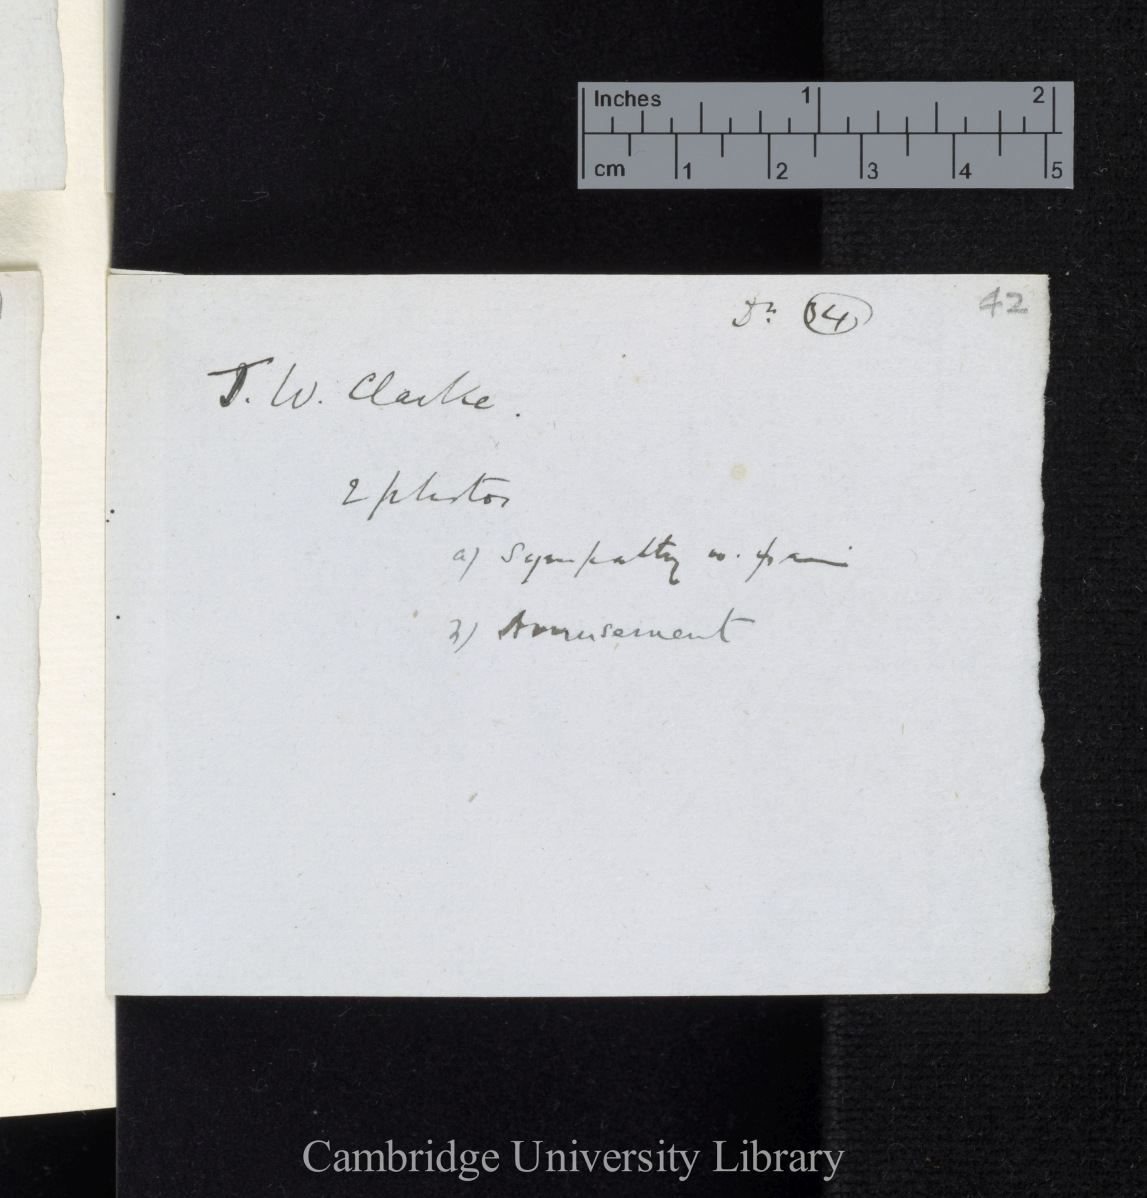 Inches 1 2
cm 1 2 3 4 5
Dr 42
J. W. Clarke.
2 photos
a) Sympathy w. pain
2) Amusement
Cambridge University Library